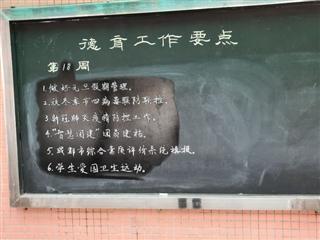 德育工作要点
第18周
1.做好元旦假期管理。
2.秋冬季节四病毒联防联控。
3.新冠肺炎疫情防控工作。
4."智慧团建"团员建档。
5.成都市综合素质评价系统填报。
6.学生爱国卫生运动。